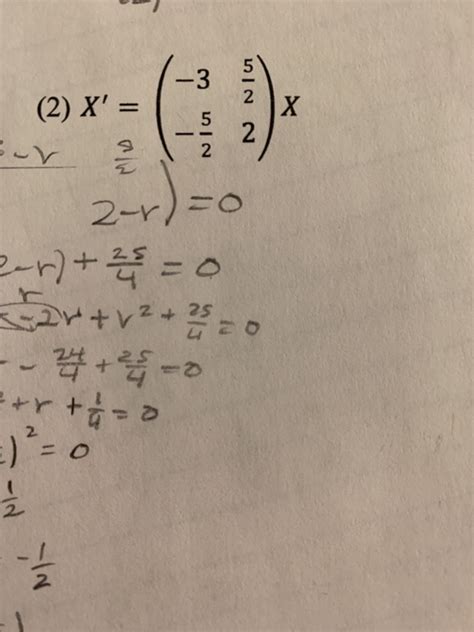 (2) X' = ( -3 5/2 -5/2 2 ) X
-r 5/2
2-r) = 0
2-r) + 25/4 = 0
r
-2r + r² + 25/4 = 0
- 24/4 + 25/4 = 0
+ r + 1/4 = 0
)² = 0
1/2
-1/2